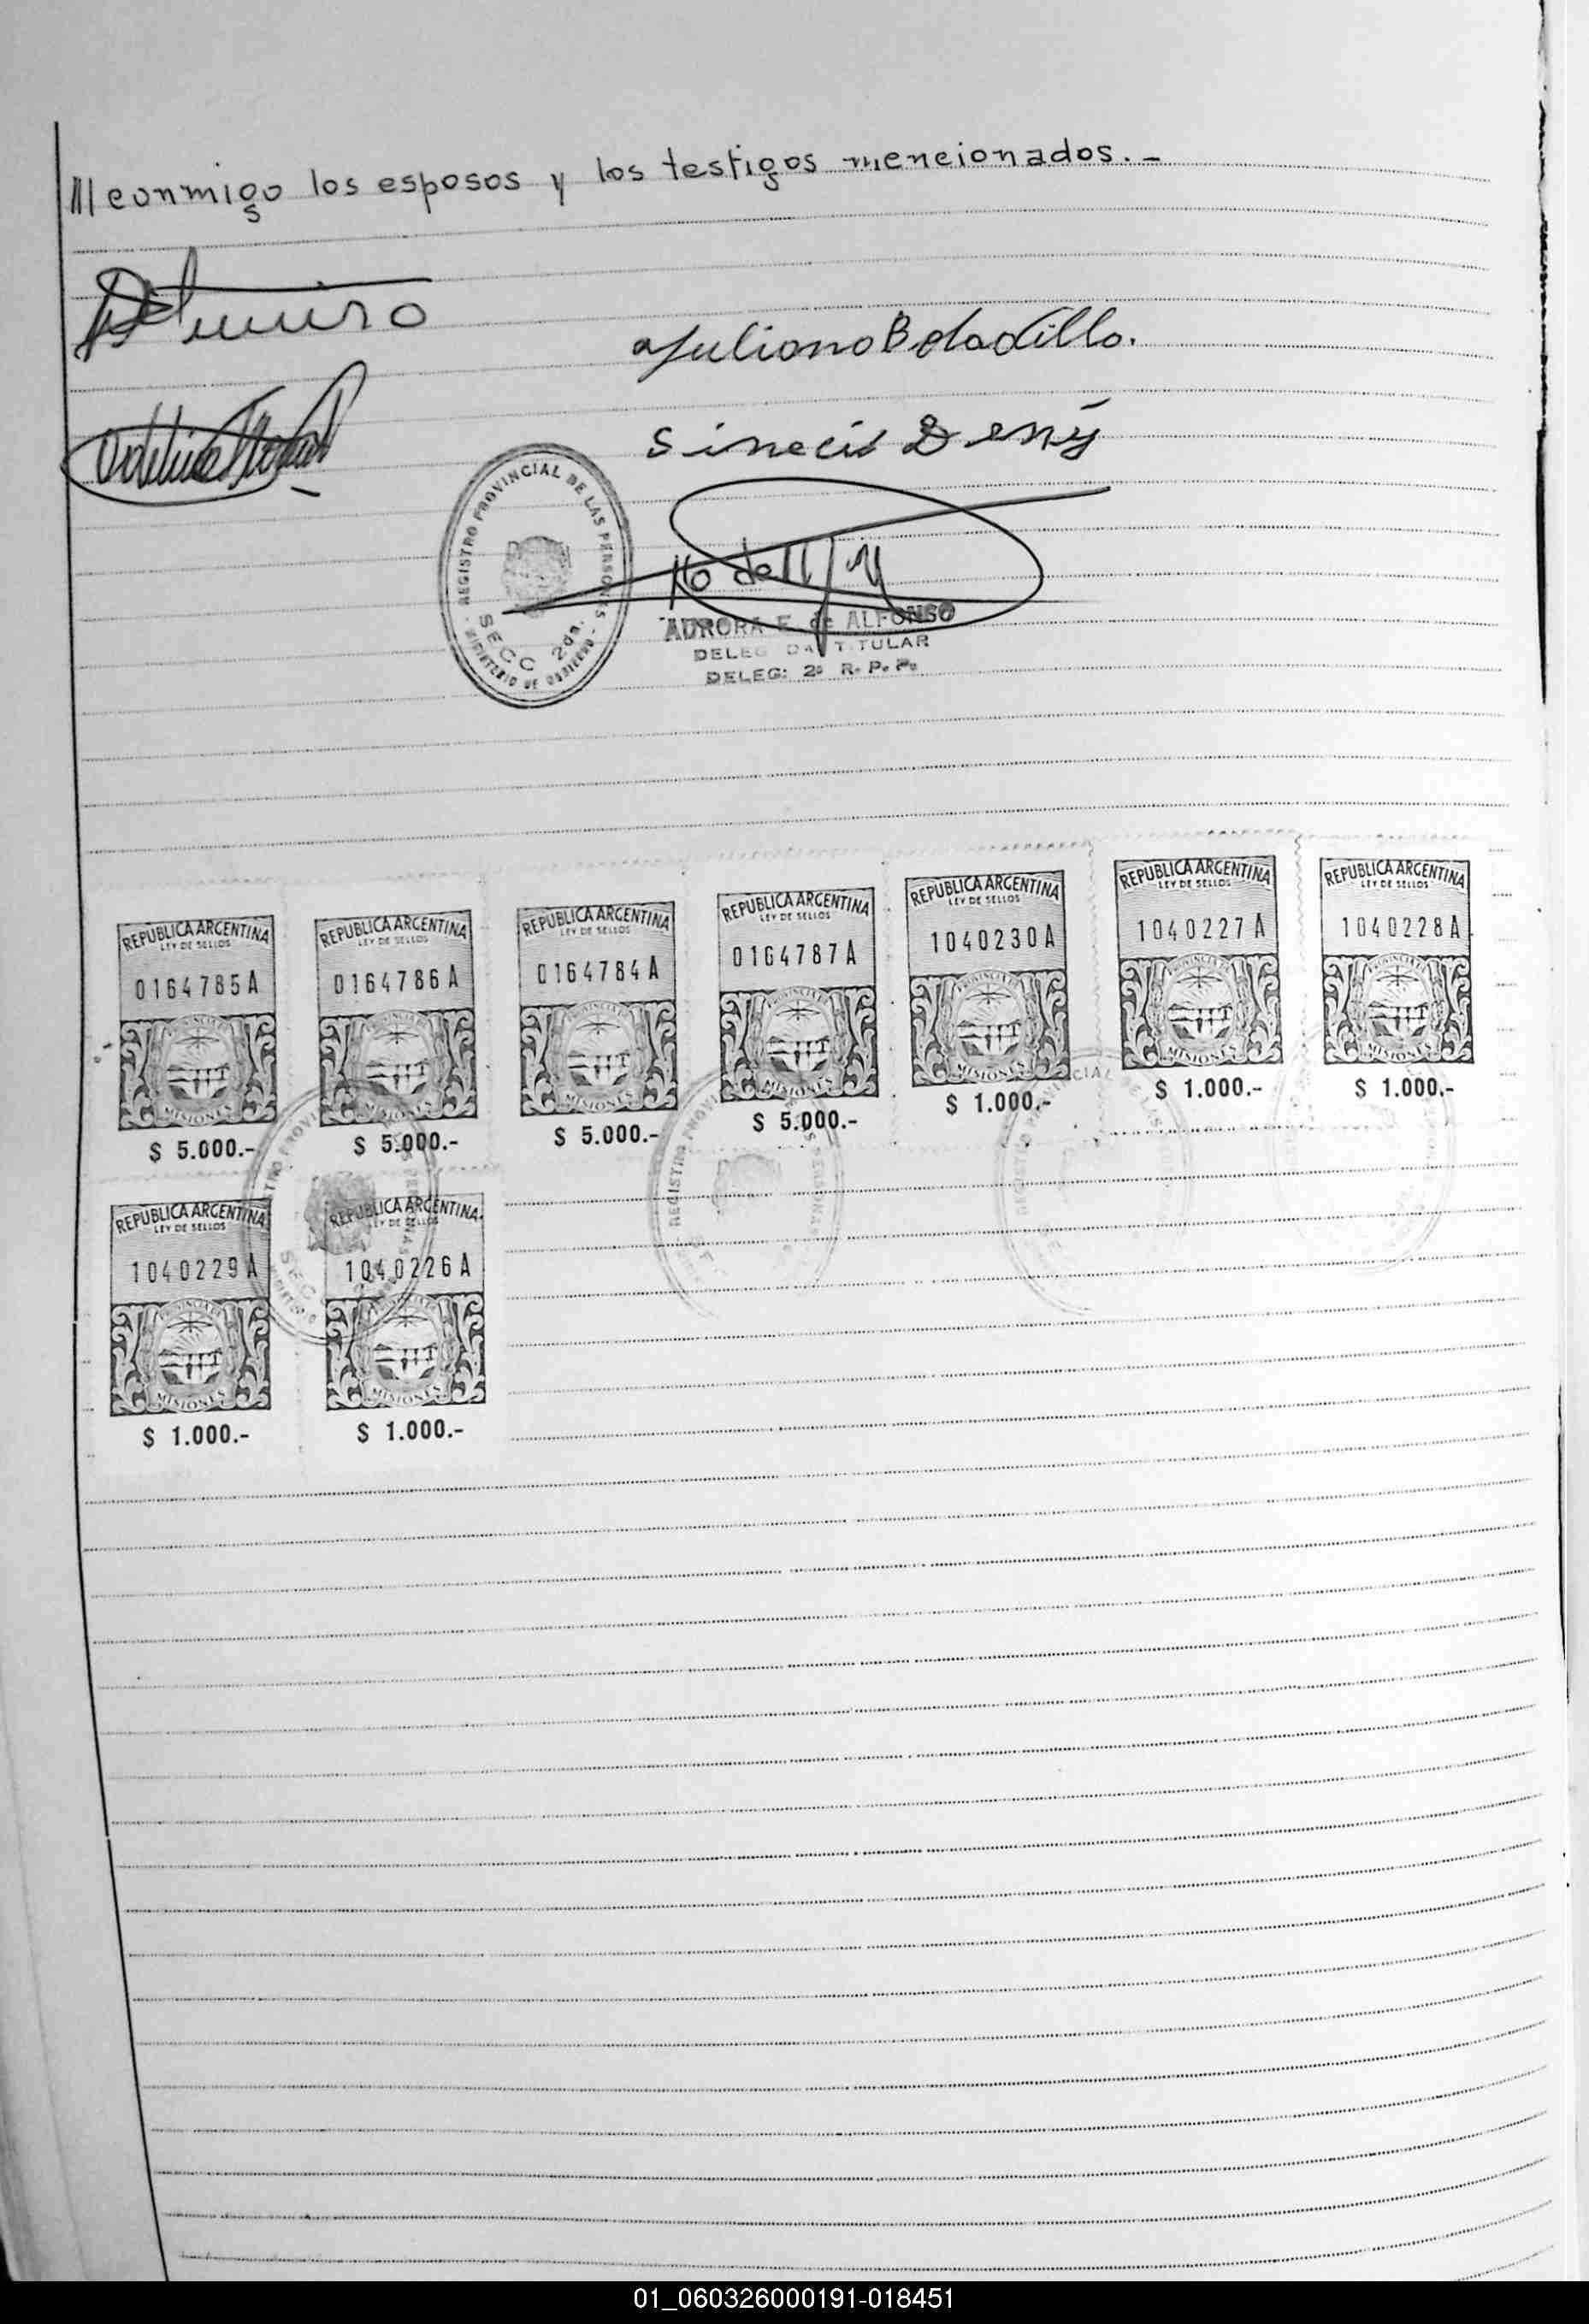 /// conmigo los esposos y los testigos mencionados.-
Juliano Bobadillo.
REGISTRO PROVINCIAL DE LAS PERSONAS
SECC 2da.
MINISTERIO DE GOBIERNO
AURORA E. de ALFONSO
DELEGADA TITULAR
DELEG: 2a R. P. P.
REPUBLICA ARGENTINA
LEY DE SELLOS
0164785A
MISIONES
$ 5.000.-
REPUBLICA ARGENTINA
LEY DE SELLOS
0164786A
MISIONES
$ 5.000.-
REPUBLICA ARGENTINA
LEY DE SELLOS
0164784A
MISIONES
$ 5.000.-
REPUBLICA ARGENTINA
LEY DE SELLOS
0164787A
MISIONES
$ 5.000.-
REPUBLICA ARGENTINA
LEY DE SELLOS
1040230A
MISIONES
$ 1.000.-
REPUBLICA ARGENTINA
LEY DE SELLOS
1040227A
MISIONES
$ 1.000.-
REPUBLICA ARGENTINA
LEY DE SELLOS
1040228A
MISIONES
$ 1.000.-
REPUBLICA ARGENTINA
LEY DE SELLOS
1040229A
MISIONES
$ 1.000.-
REPUBLICA ARGENTINA
LEY DE SELLOS
1040226A
MISIONES
$ 1.000.-
01_060326000191-018451